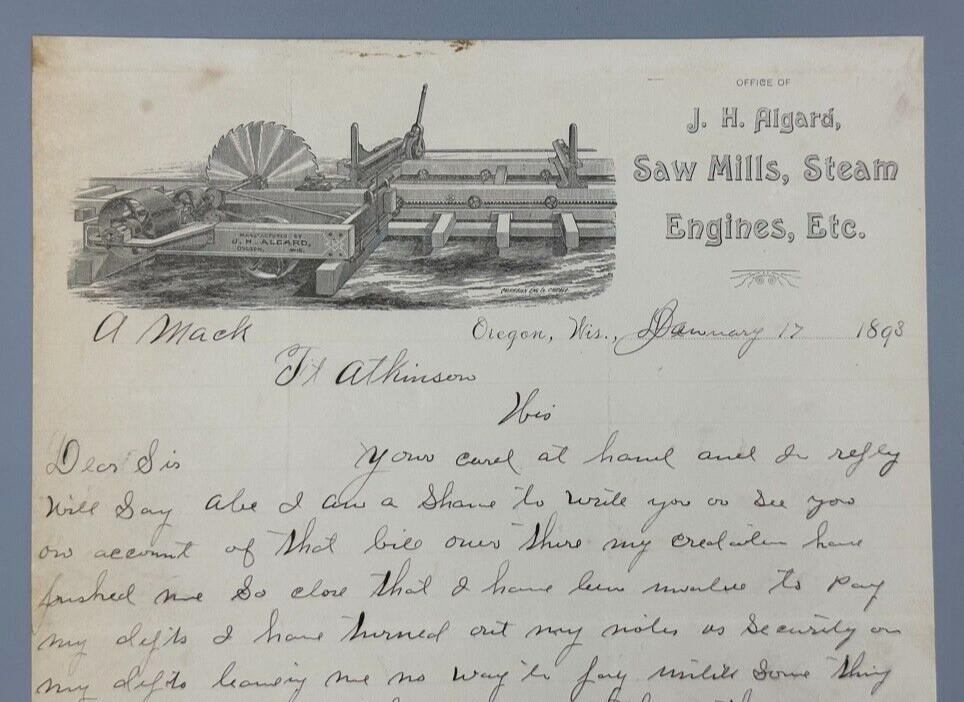 OFFICE OF
J. H. Algard,
Saw Mills, Steam
Engines, Etc.
MANUFACTURED BY
J. H. ALGARD,
OREGON, WIS.
A Mack
Oregon, Wis., January 17 1893
Ft Atkinson
Wis
Dear Sir Your card at hand and in reply
Will Say Abe I am a Shame to write you or See you
on account of that bill over there my creditors have
pushed me So close that I have been unable to pay
my debts I have turned out my notes as Security on
my debts leaving me no way to pay untill Some thing